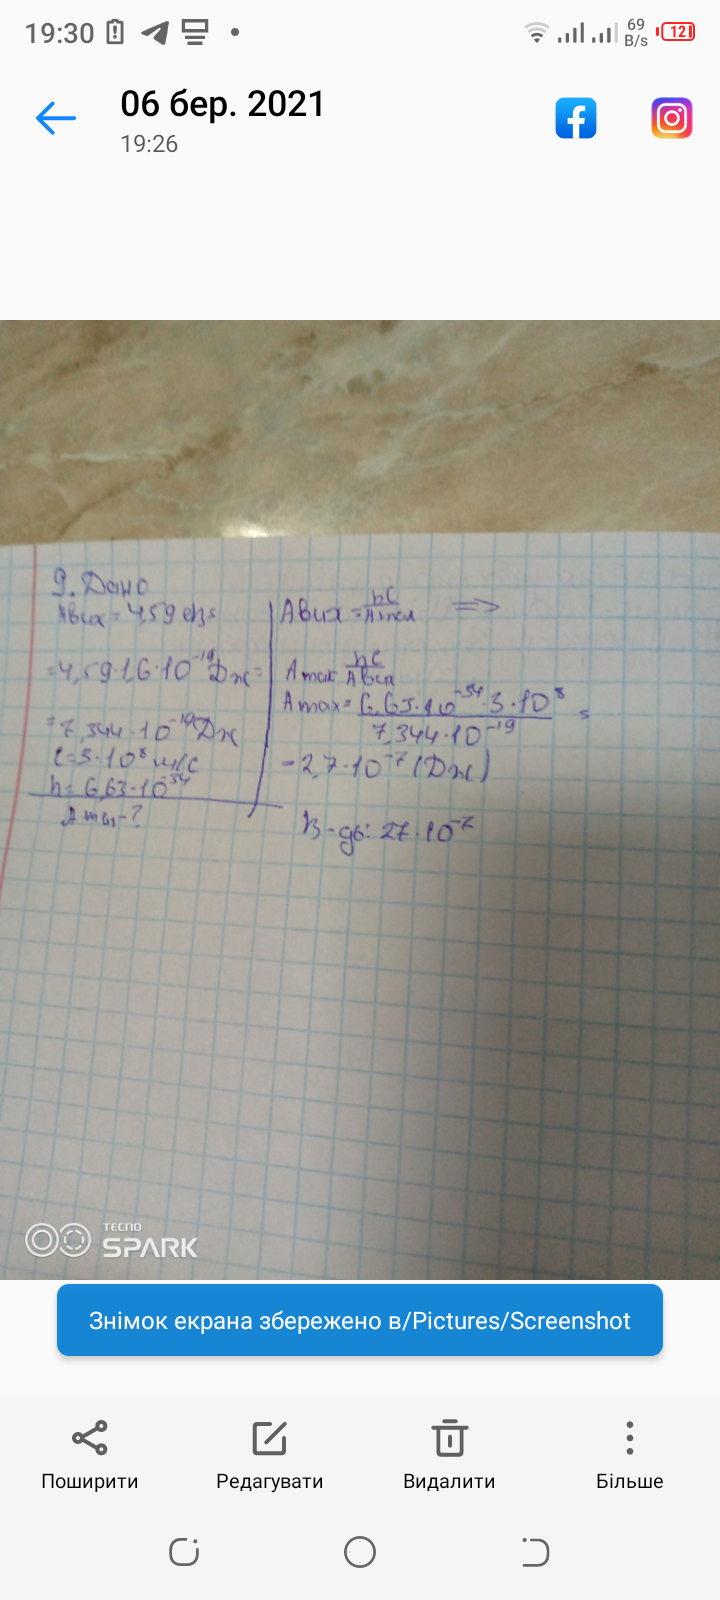 19:30
69 B/s
12
06 бер. 2021
19:26
9. Дано
Aвих = 4,59 еВ =
= 4,59·1,6·10⁻¹⁹ Дж =
= 7,344·10⁻¹⁹ Дж
c = 3·10⁸ м/с
h = 6,63·10⁻³⁴
- ?
Aвих = hc/ =>
hc/Aвих
Amax = 6,63·10⁻³⁴·3·10⁸/7,344·10⁻¹⁹ =
= 2,7·10⁻⁷ (Дж)
В-дь: 27·10⁻⁷
TECNO
SPARK
Знімок екрана збережено в/Pictures/Screenshot
Поширити Редагувати Видалити Більше